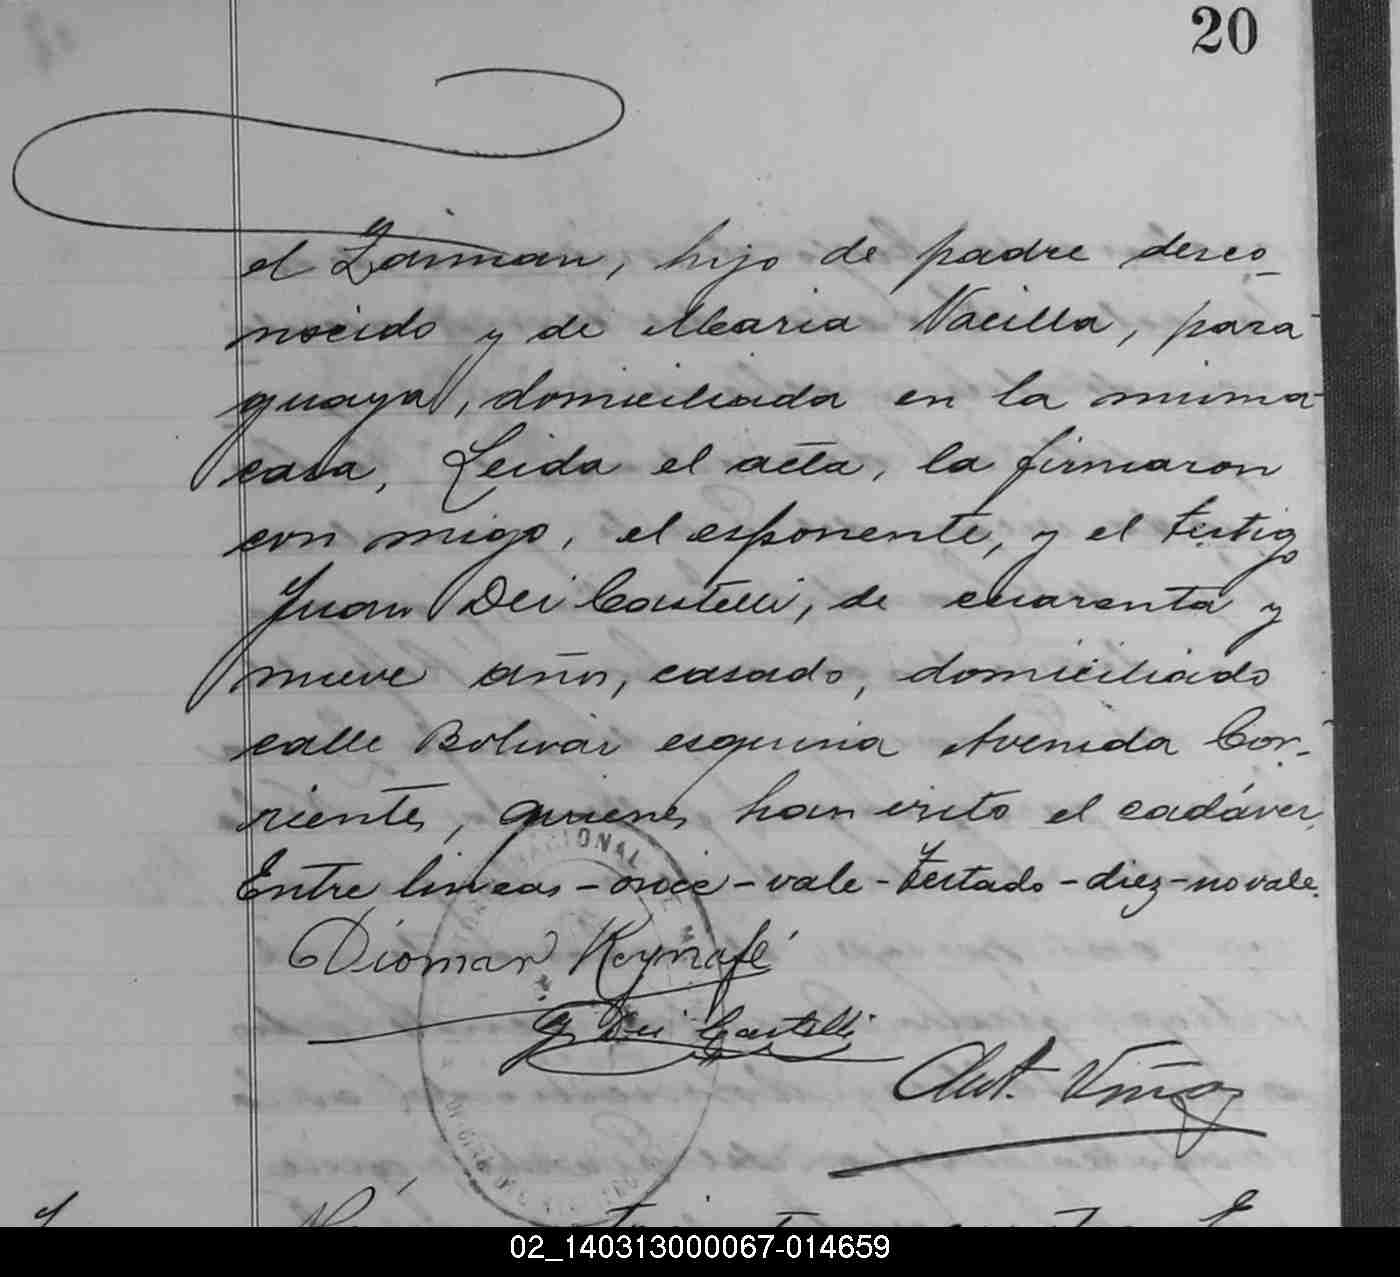 20
el Zaiman, hijo de padre desco
nocido y de Maria Vacilla, para
guaya, domiciliada en la misma
casa, Leida el acta, la firmaron
con migo, el esponente, y el testigo
Juan Dei Castelli, de cuarenta y
nueve años, casado, domiciliado
calle Bolivar esquina Avenida Cor-
rientes, quienes han visto el cadáver.
Entre lineas - once - vale - testado - diez - no vale.
Diomar Reynafé
J Dei Castelli
Ant. Viñas
NACIONAL DE
02_140313000067-014659